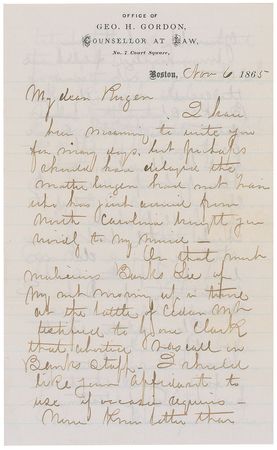 OFFICE OF
GEO. H. GORDON,
COUNSELLOR AT LAW,
No. 7 Court Square,
Boston, Nov 6 1865
My dear
I have
been meaning to write you
for many days, but perhaps
should have delayed the
matter longer had not
who has just arrived from
North Carolina brought you
vividly to my mind —
In that most
malicious Banks lie of
my not moving up in time
at the battle of Cedar Mt
to one Clark
that abortive rascal on
Banks Staff — I should
like your affidavit to
use if occasion requires —
None knew better than